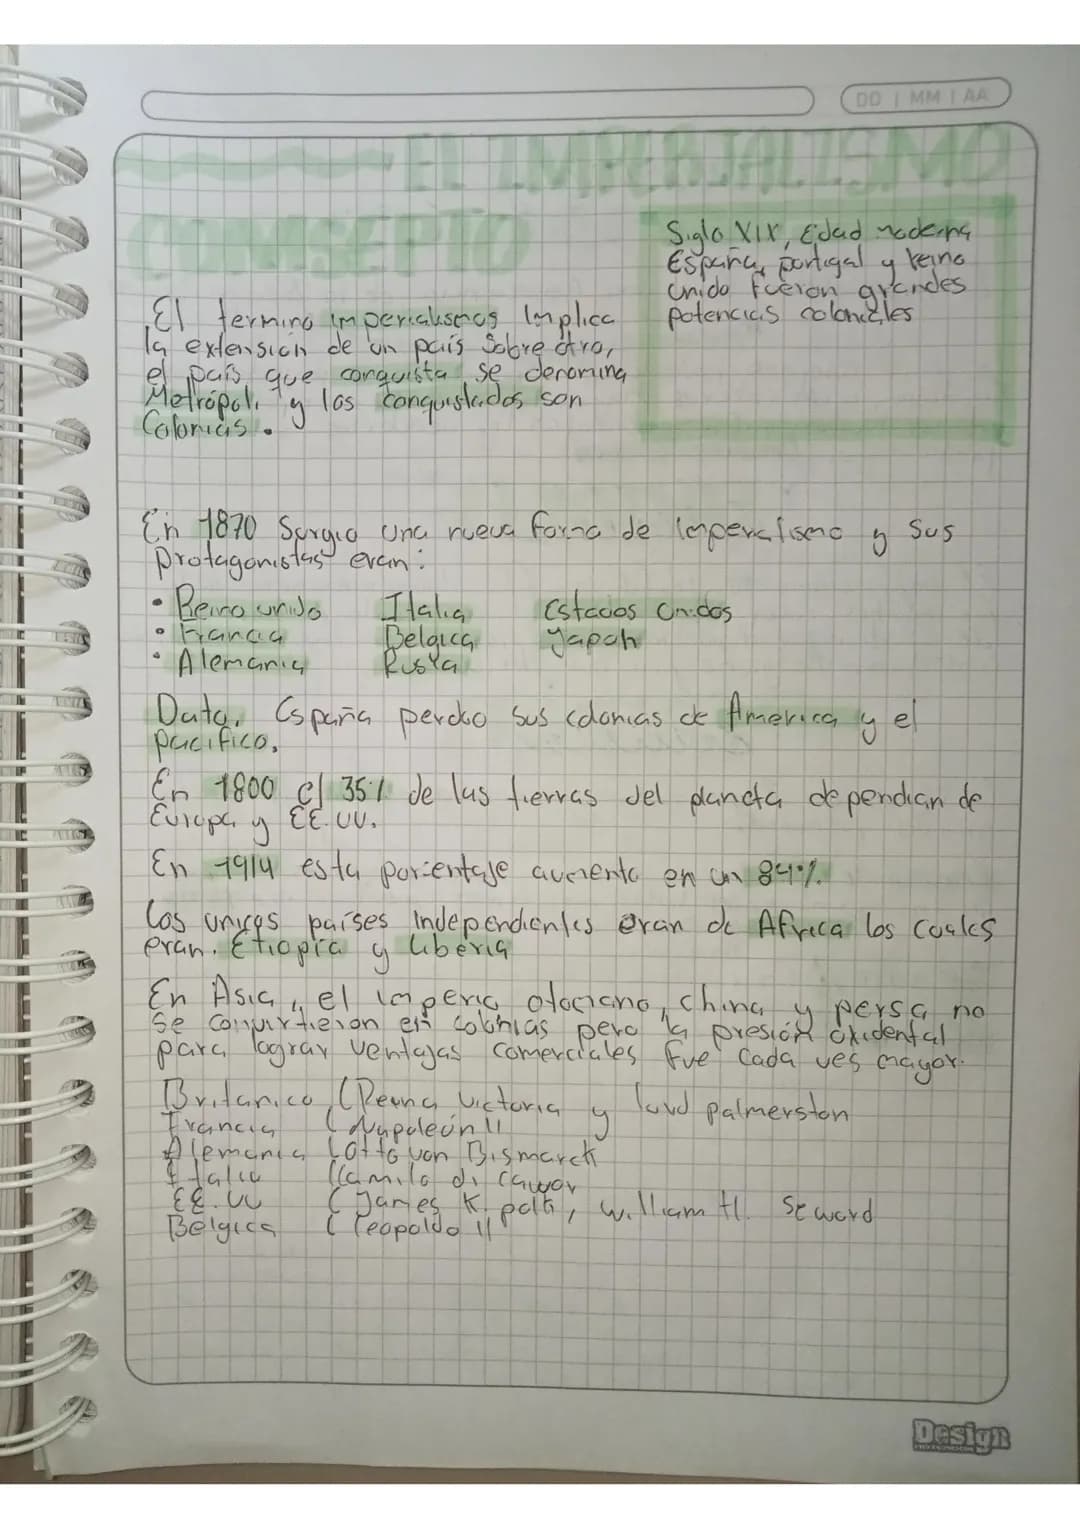 DD | MM | AA
EL IMPERIALISMO
CONCEPTO
Siglo XIX, Edad moderna
España, portugal y reino
unido fueron grandes
potencias coloniales
El termino imperialismos Implica
la extensión de un país Sobre otro,
el país que conquista se denomina
Metrópoli y los conquistados son
Colonias.
En 1870 Surgio una nueva forma de Imperalismo y Sus
Protagonistas eran:
• Reino unido Italia Estados Unidos
• Francia Belgica Japon
• Alemania Rusia
Dato, España perdio sus colonias de America y el
pacifico.
En 1800 el 35% de las tierras del planeta dependian de
Europa y EE.UU.
En 1914 esta porcentaje aumento en un 84%.
los unicos países Independientes eran de Africa los cuales
eran. Etiopía y Liberia
En Asia, el imperio otomano, china y persa no
se convirtieron en colonias pero la presión oxidental
para lograr ventajas comerciales fue cada ves mayor.
Britanico (Reina Victoria y lord palmerston
Francia (Napoleón II
Alemania (Otto von Bismarck
Italia (Camilo di cavour
EE.UU (James K. polk, william H. Seward
Belgica (leopoldo II
Design